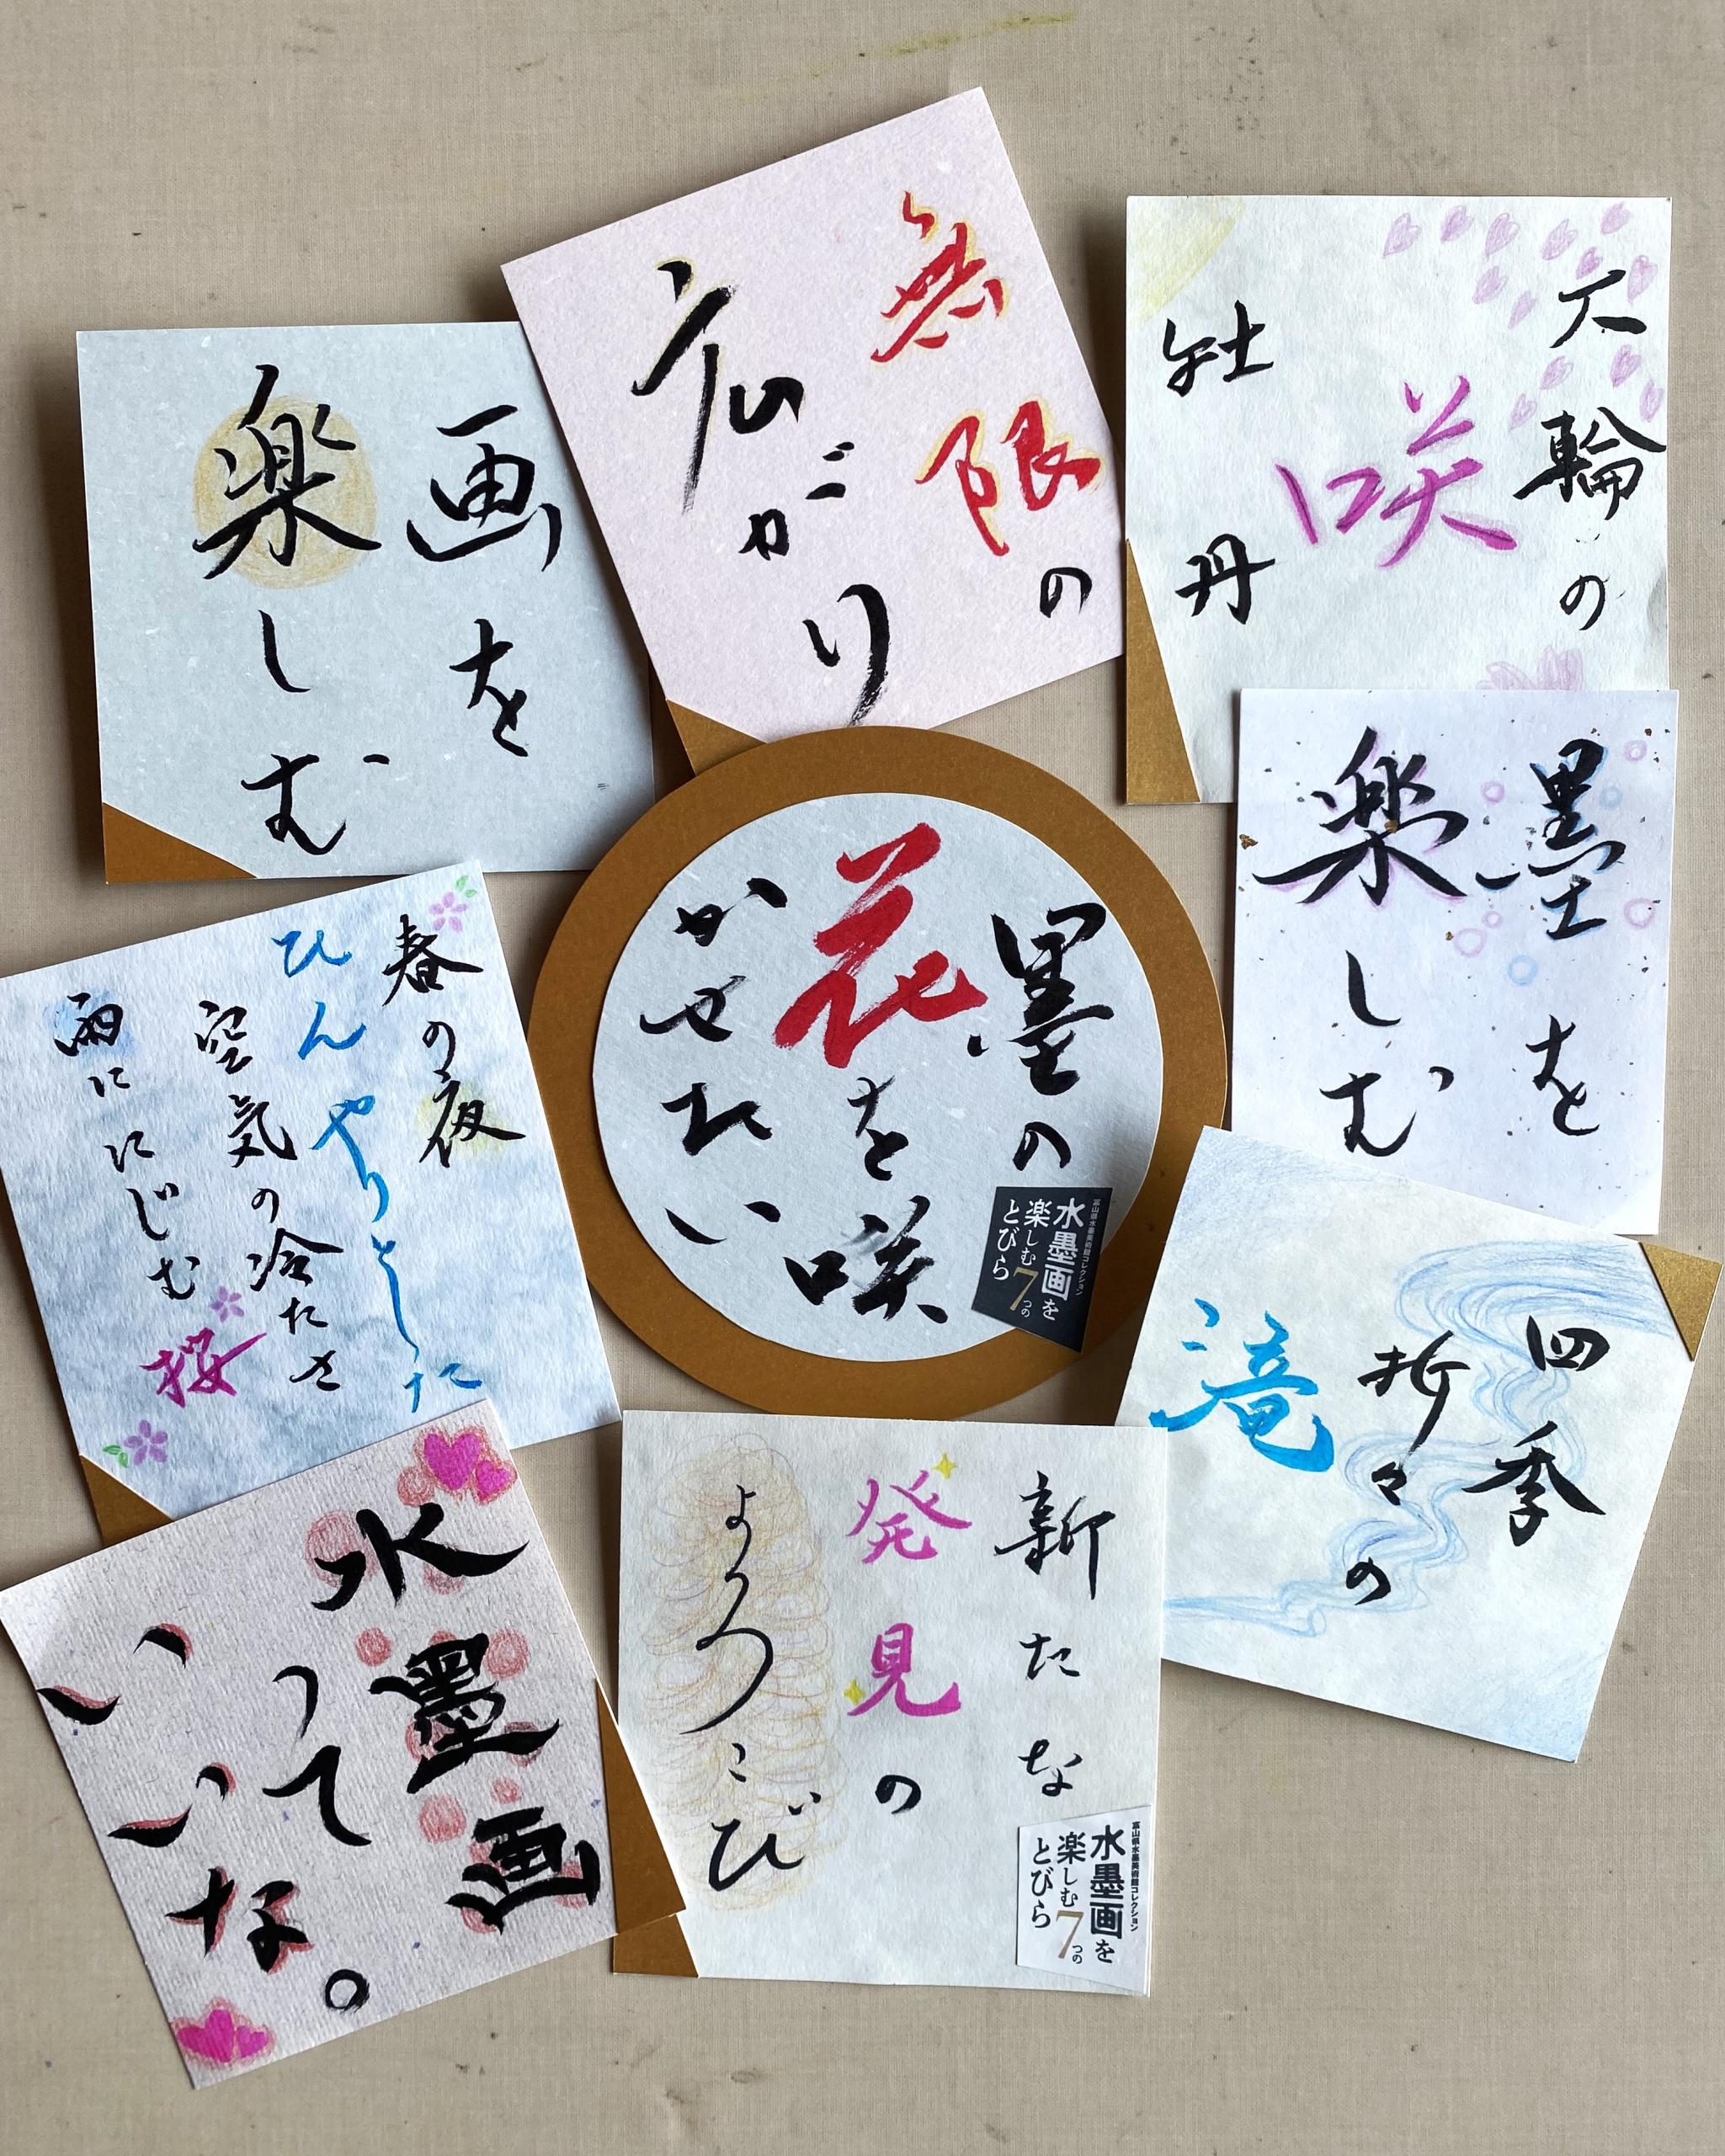 画を
楽しむ
無限の
広がり
大輪の
咲
牡丹
墨を
楽しむ
墨の
花を咲
かせたい
富山県水墨美術館コレクション
水墨画を
楽しむ7つの
とびら
春の夜
ひんやりとした
空気の冷たさ
雨ににじむ
桜
四季
折々の
滝
水墨画
って
いいな。
新たな
発見の
よろこび
富山県水墨美術館コレクション
水墨画を
楽しむ7つの
とびら